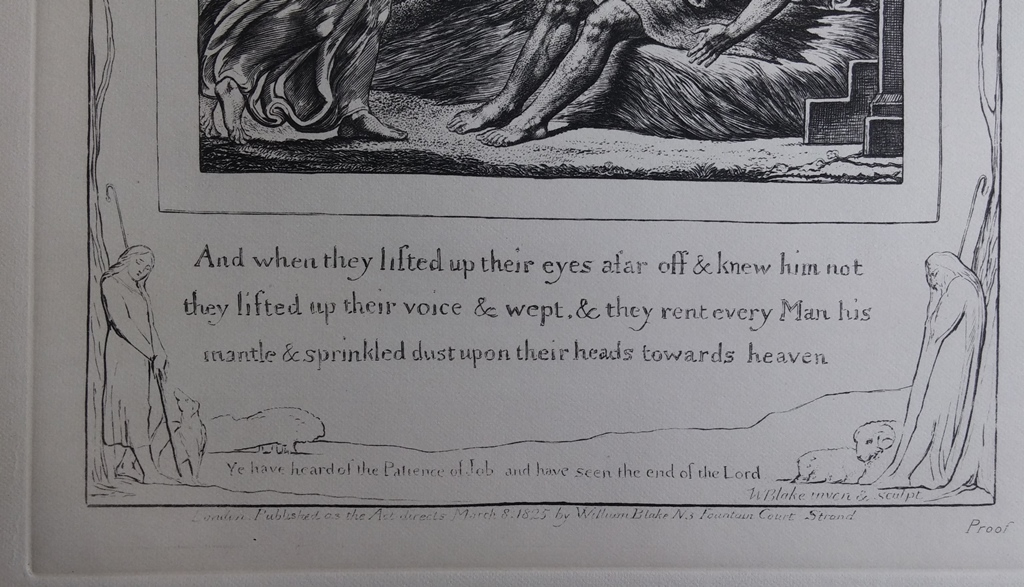 And when they lifted up their eyes afar off & knew him not
they lifted up their voice & wept, & they rent every Man his
mantle & sprinkled dust upon their heads towards heaven
Ye have heard of the Patience of Job and have seen the end of the Lord
WBlake inven & sculpt
London. Published as the Act directs March 8. 1825 by William Blake N3 Fountain Court Strand
Proof